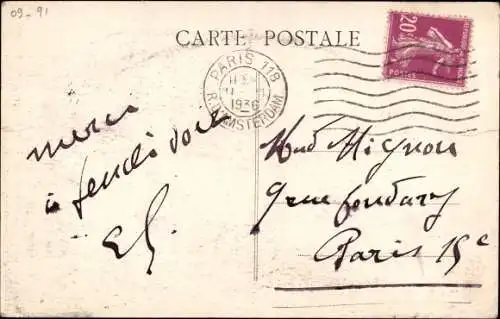 09-91
CARTE POSTALE
PARIS 118
R. AMSTERDAM
1936
20c
POSTES
merci
à jeudi soir
Mad Mignon
9 rue Fondary
Paris 15e